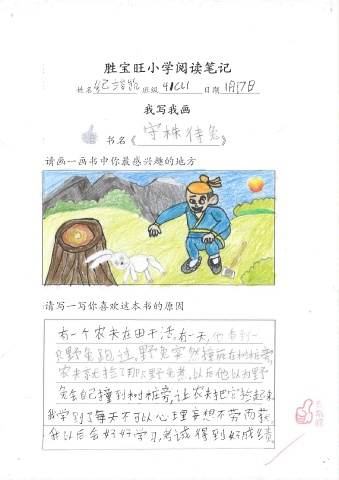 胜宝旺小学阅读笔记
姓名 班级 日期 1月17日
我写我画
书名《守株待兔》
请画一画书中你最感兴趣的地方
请写一写你喜欢这本书的原因
有一个农夫在田干活,有一天,他看到一
只野兔跑过,野兔突然撞死在树桩旁,
农夫就捡了那只野兔煮。以后他以为野
兔会自己撞到树桩旁,让农夫把它捡起来。
我学到了每天不可以心里妄想不劳而获。
我以后会好好学习,考试得到好成绩。